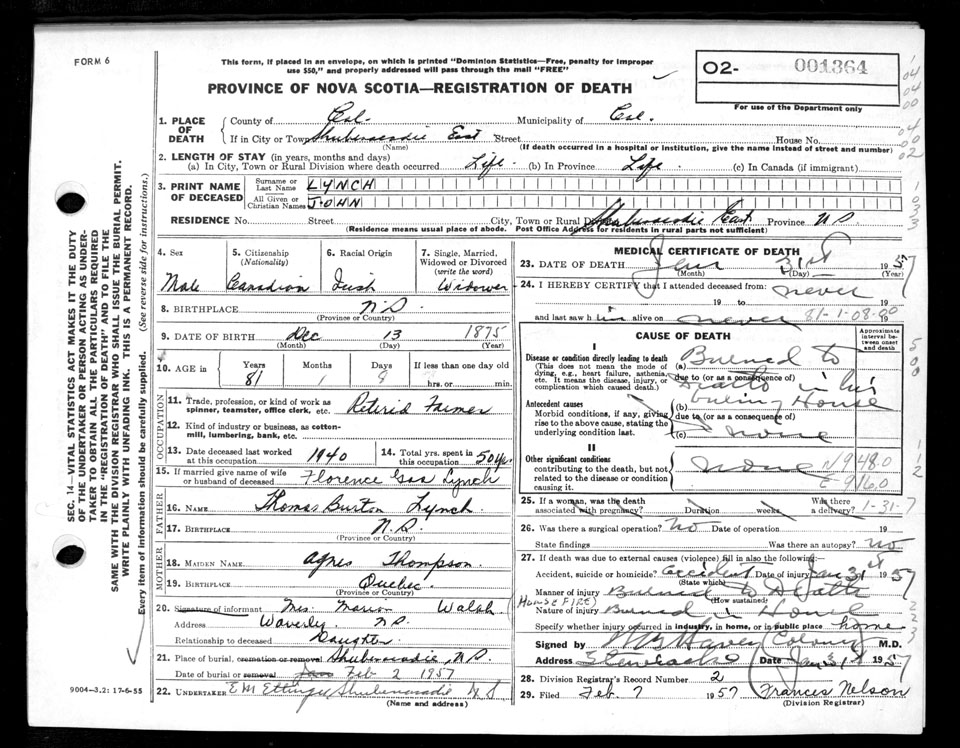 FORM 6
This form, if placed in an envelope, on which is printed "Dominion Statistics—Free, penalty for improper
use $50," and properly addressed will pass through the mail "FREE"
O2- 001364
For use of the Department only
PROVINCE OF NOVA SCOTIA—REGISTRATION OF DEATH
1. PLACE OF DEATH
County of Col. Municipality of Col.
If in City or Town Shubenacadie East Street House No.
(Name) (If death occurred in a hospital or institution, give the name instead of street and number)
2. LENGTH OF STAY (in years, months and days)
(a) In City, Town or Rural Division where death occurred Life. (b) In Province Life. (c) In Canada (if immigrant)
3. PRINT NAME OF DECEASED
Surname or Last Name LYNCH
All Given or Christian Names JOHN
RESIDENCE No. Street City, Town or Rural D Shubenacadie East Province N.S.
(Residence means usual place of abode. Post Office Address for residents in rural parts not sufficient)
4. Sex Male
5. Citizenship (Nationality) Canadian
6. Racial Origin Irish
7. Single, Married, Widowed or Divorced (write the word) Widower
8. BIRTHPLACE N.S.
(Province or Country)
9. DATE OF BIRTH Dec 13 1875
(Month) (Day) (Year)
10. AGE in Years 81 Months 1 Days 8 If less than one day old hrs. or min.
OCCUPATION
11. Trade, profession, or kind of work as spinner, teamster, office clerk, etc. Retired Farmer
12. Kind of industry or business, as cotton-mill, lumbering, bank, etc.
13. Date deceased last worked at this occupation 1940
14. Total yrs. spent in this occupation 50 yrs.
15. If married give name of wife or husband of deceased Florence Lynch
FATHER
16. NAME Thomas Burton Lynch.
17. BIRTHPLACE N.S.
(Province or Country)
MOTHER
18. MAIDEN NAME Agnes Thompson.
19. BIRTHPLACE Quebec.
(Province or Country)
20. Signature of informant Mrs. Marion Walsh
Address Waverly. N.S.
Relationship to deceased Daughter.
21. Place of burial, cremation or removal Shubenacadie, N.S.
Date of burial or removal Jan Feb 2 1957
22. UNDERTAKER E M Ettinger Shubenacadie N S
(Name and address)
9004-3.2: 17-6-55
MEDICAL CERTIFICATE OF DEATH
23. DATE OF DEATH Jan 31st 1957
(Month) (Day) (Year)
24. I HEREBY CERTIFY that I attended deceased from: never
19 to 19
and last saw h im alive on never 19
81-1-08-00
CAUSE OF DEATH
Approximate interval between onset and death
I
Disease or condition directly leading to death
(This does not mean the mode of dying, e.g., heart failure, asthenia, etc. It means the disease, injury, or complication which caused death.)
(a) Burned to
due to (or as a consequence of)
Death in his
Antecedent causes
Morbid conditions, if any, giving rise to the above cause, stating the underlying condition last.
(b) burning House
due to (or as a consequence of)
(c) none
II
Other significant conditions contributing to the death, but not related to the disease or condition causing it.
none
E-9160
25. If a woman, was the death associated with pregnancy? Duration weeks Was there a delivery?
1-31-7
26. Was there surgical operation? no Date of operation 19
State findings Was there an autopsy? no
27. If death was due to external causes (violence) fill in also the following:—
Accident, suicide or homicide? accident Date of injury Jan 31st 1957
(State which)
Manner of injury Burned to Death
(How sustained)
(HOUSE FIRE)
Nature of injury Burned in House
Specify whether injury occurred in industry, in home, or in public place home
Signed by M.D.
Address Stewiacke Date Jan 31st 1957
28. Division Registrar's Record Number 2
29. Filed Feb. 7 1957 Frances Nelson
(Division Registrar)
SEC. 14—VITAL STATISTICS ACT MAKES IT THE DUTY
OF THE UNDERTAKER OR PERSON ACTING AS UNDER-
TAKER TO OBTAIN ALL THE PARTICULARS REQUIRED
IN THE "REGISTRATION OF DEATH" AND TO FILE THE
SAME WITH THE DIVISION REGISTRAR WHO SHALL ISSUE THE BURIAL PERMIT.
WRITE PLAINLY WITH UNFADING INK. THIS IS A PERMANENT RECORD.
Every item of information should be carefully supplied. (See reverse side for instructions.)